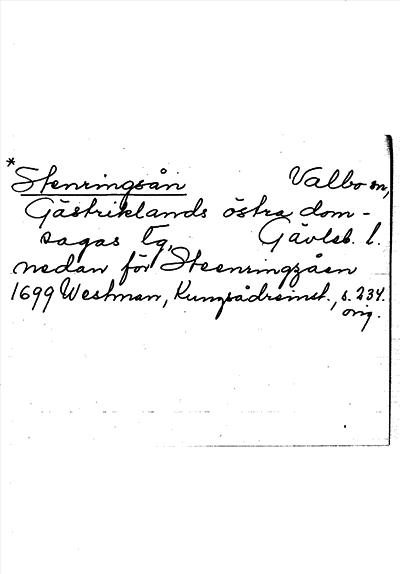 *Stenringsån Valbo sn,
Gästriklands östra dom-
sagas tg, Gävleb. l.
nedan för Steenringzåen
1699 Westman, Kungsådreinst., s. 234.
orig.